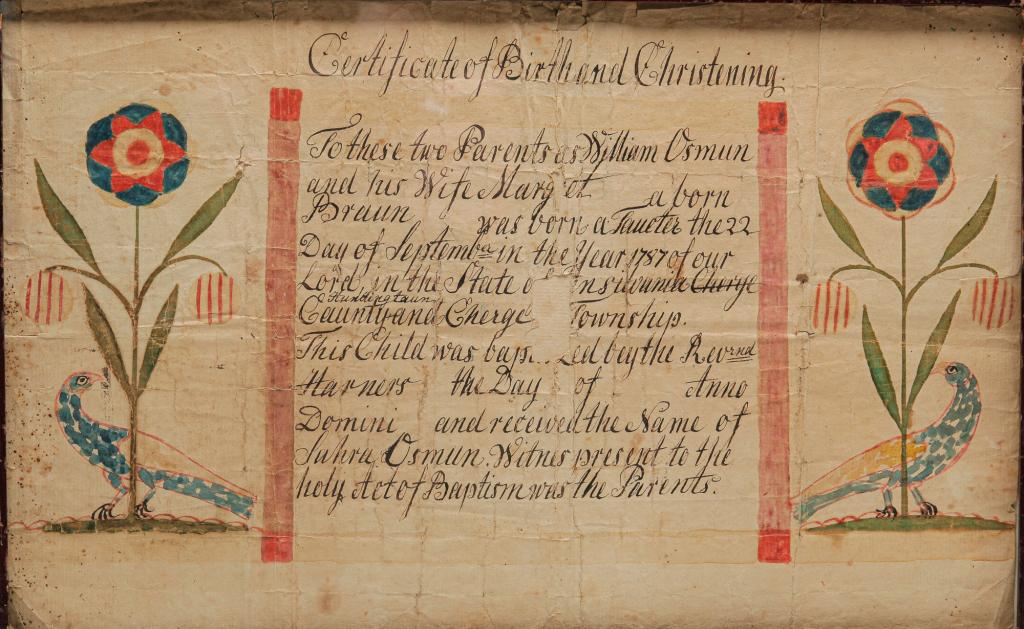 Certificate of Birth and Christening.
To these two Parents as William Osmun
and his Wife Margret a born
Braun was born a Taucter the 22
Day of September in the Year 1787 of our
Lord, in the State o nsilvania Cherge
Hundingtaun
Caunty and Cherge Township.
This Child was bap.. zed bey the Revrnd
Harners the Day of Anno
Domini and received the Name of
Sahra Osmun. Witnes present to the
holy Act of Baptism was the Parents.